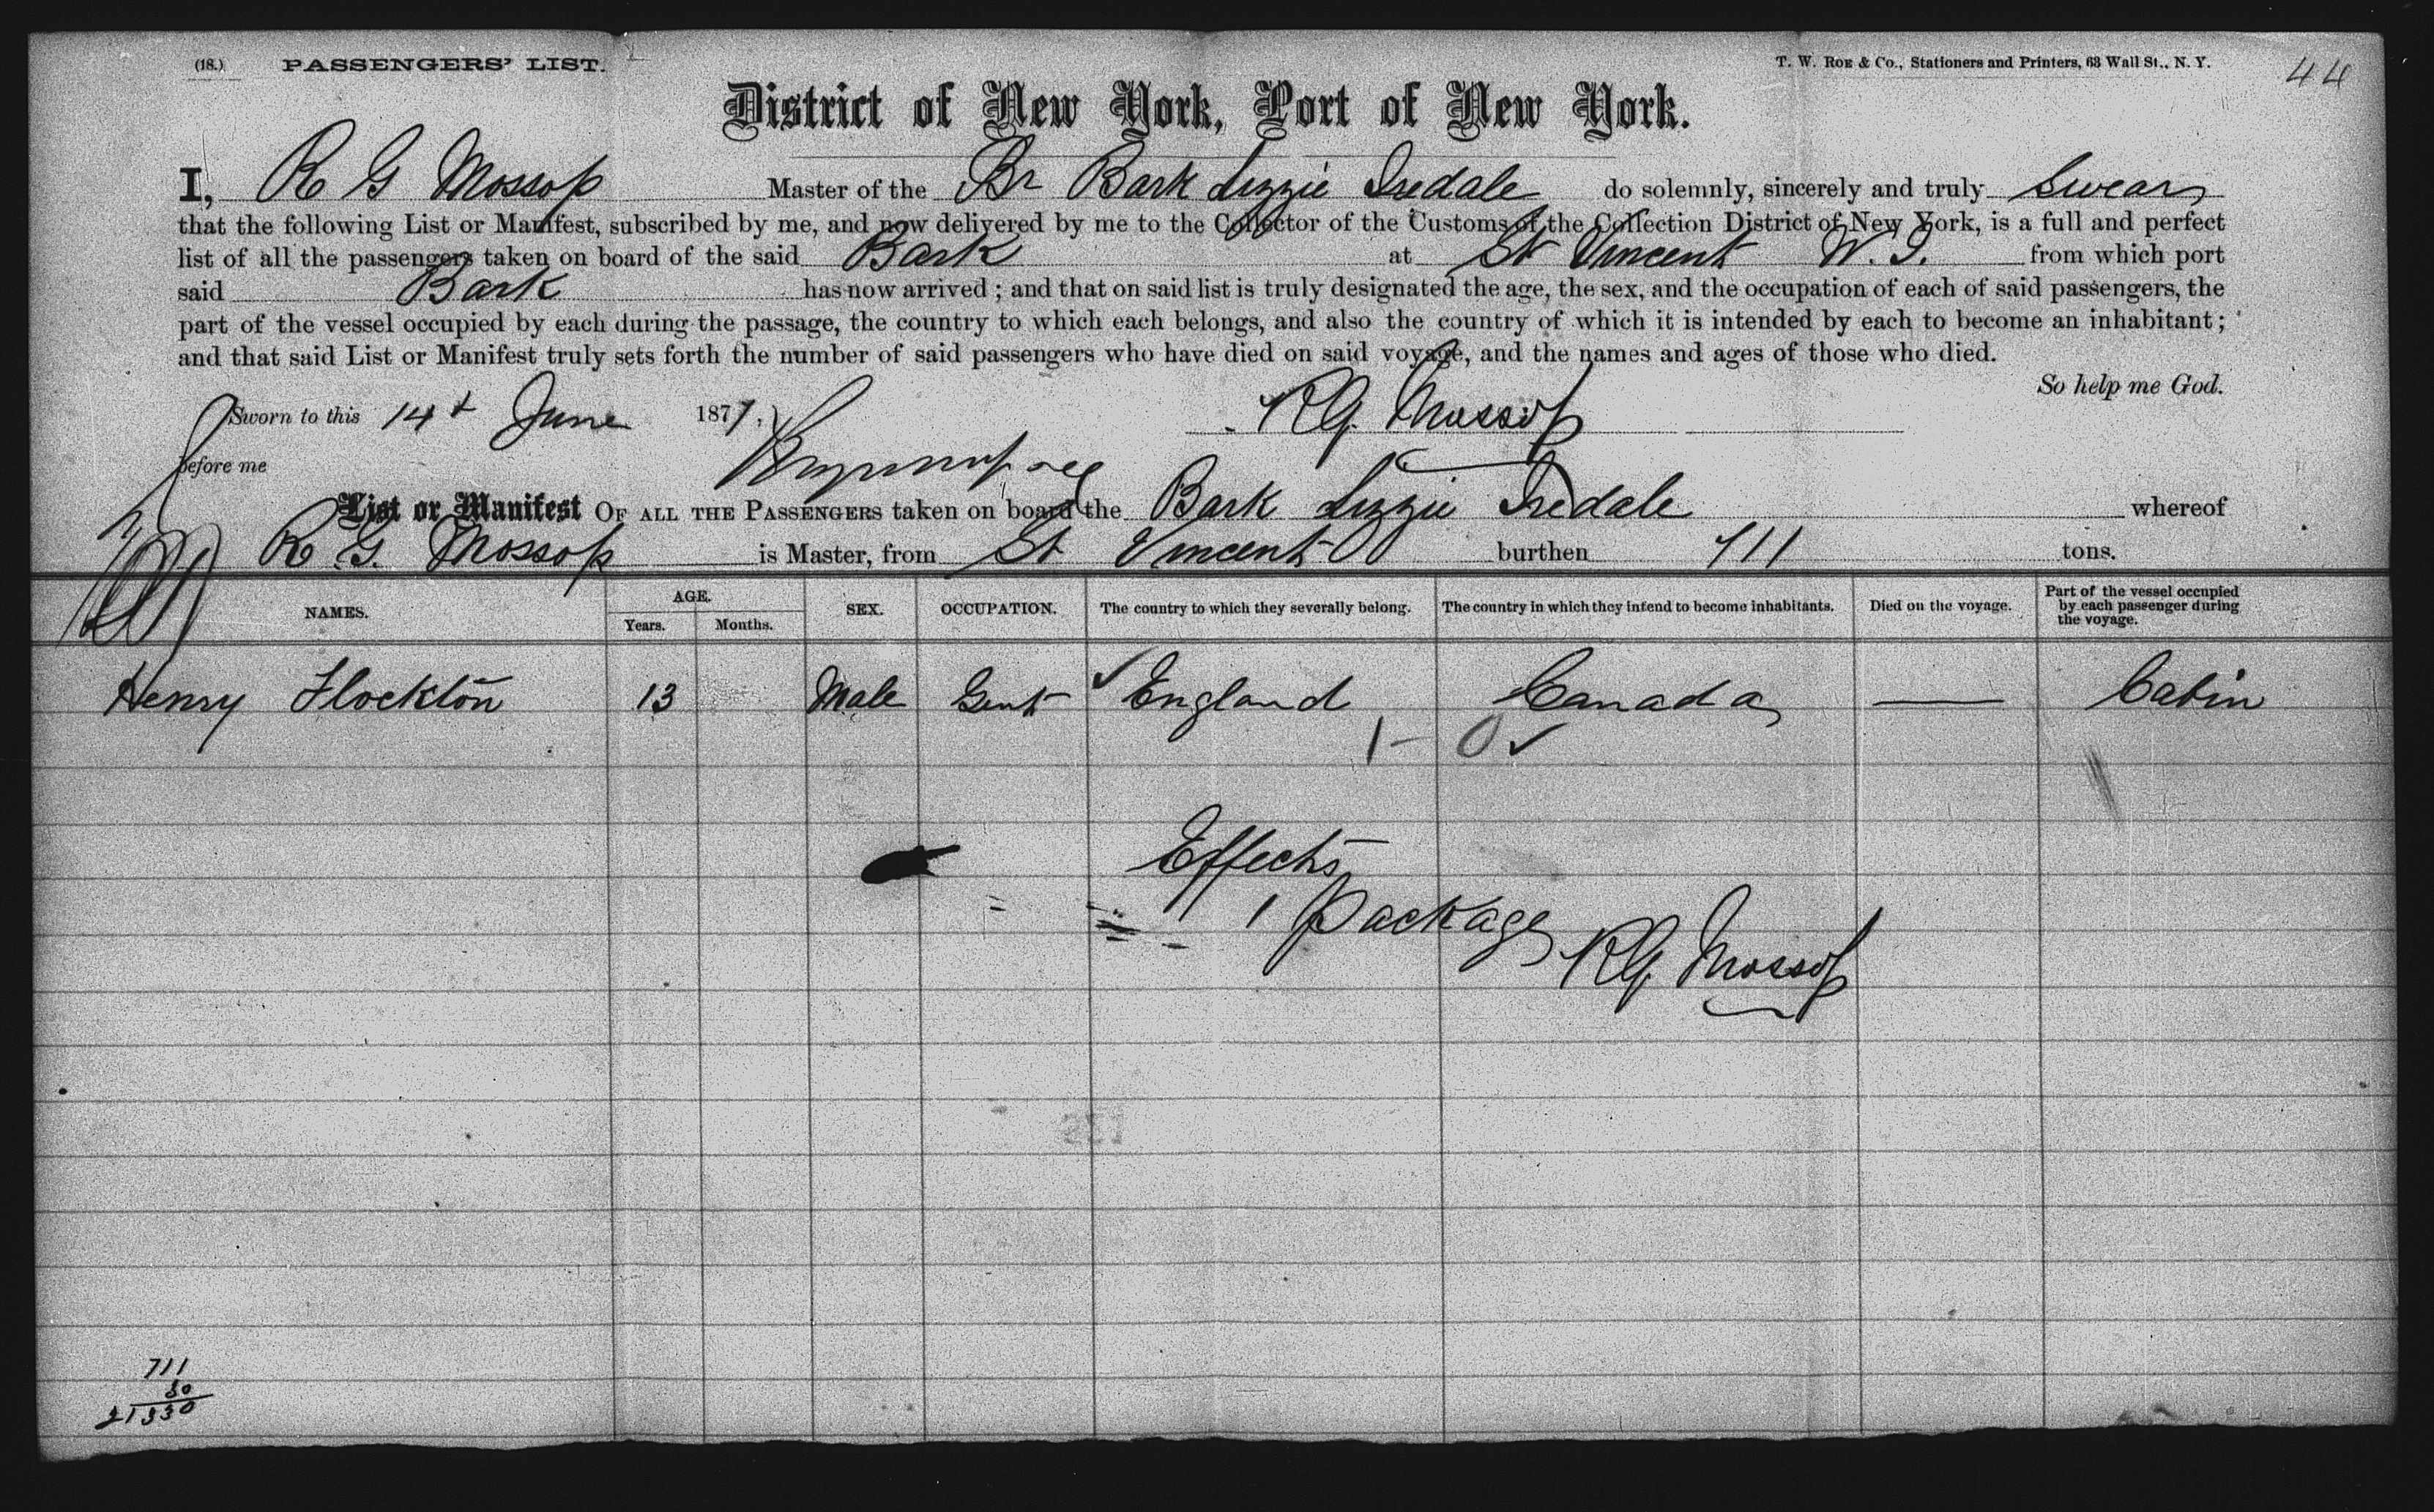 (18.) PASSENGERS' LIST. T. W. ROE & Co., Stationers and Printers, 63 Wall St., N. Y. 44
District of New York, Port of New York.
I, R G Mossop Master of the Br Bark Lizzie Iredale do solemnly, sincerely and truly swear
that the following List or Manifest, subscribed by me, and now delivered by me to the Collector of the Customs of the Collection District of New York, is a full and perfect
list of all the passengers taken on board of the said Bark at St Vincent W. I. from which port
said Bark has now arrived ; and that on said list is truly designated the age, the sex, and the occupation of each of said passengers, the
part of the vessel occupied by each during the passage, the country to which each belongs, and also the country of which it is intended by each to become an inhabitant ;
and that said List or Manifest truly sets forth the number of said passengers who have died on said voyage, and the names and ages of those who died.
So help me God.
Sworn to this 14t June 1877. RG. Mossop
before me
List or Manifest OF ALL THE PASSENGERS taken on board the Bark Lizzie Iredale whereof
R G. Mossop is Master, from St Vincent burthen 711 tons.
NAMES. AGE. Years. Months. SEX. OCCUPATION. The country to which they severally belong. The country in which they intend to become inhabitants. Died on the voyage. Part of the vessel occupied by each passenger during the voyage.
Henry Flockton 13 Male Gent England Canada — Cabin
1 - 0 ✓
Effects
1 Package
RG. Mossop
711
30
21330